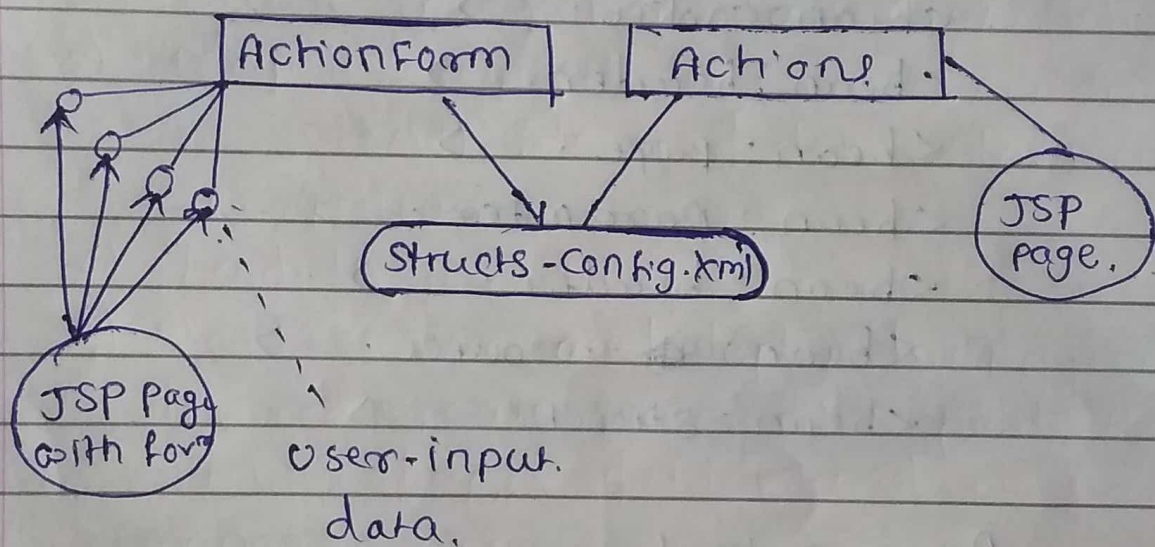 ActionForm
Actions.
JSP
page.
Structs-Config.xml
JSP Page
with form
User-input.
data.